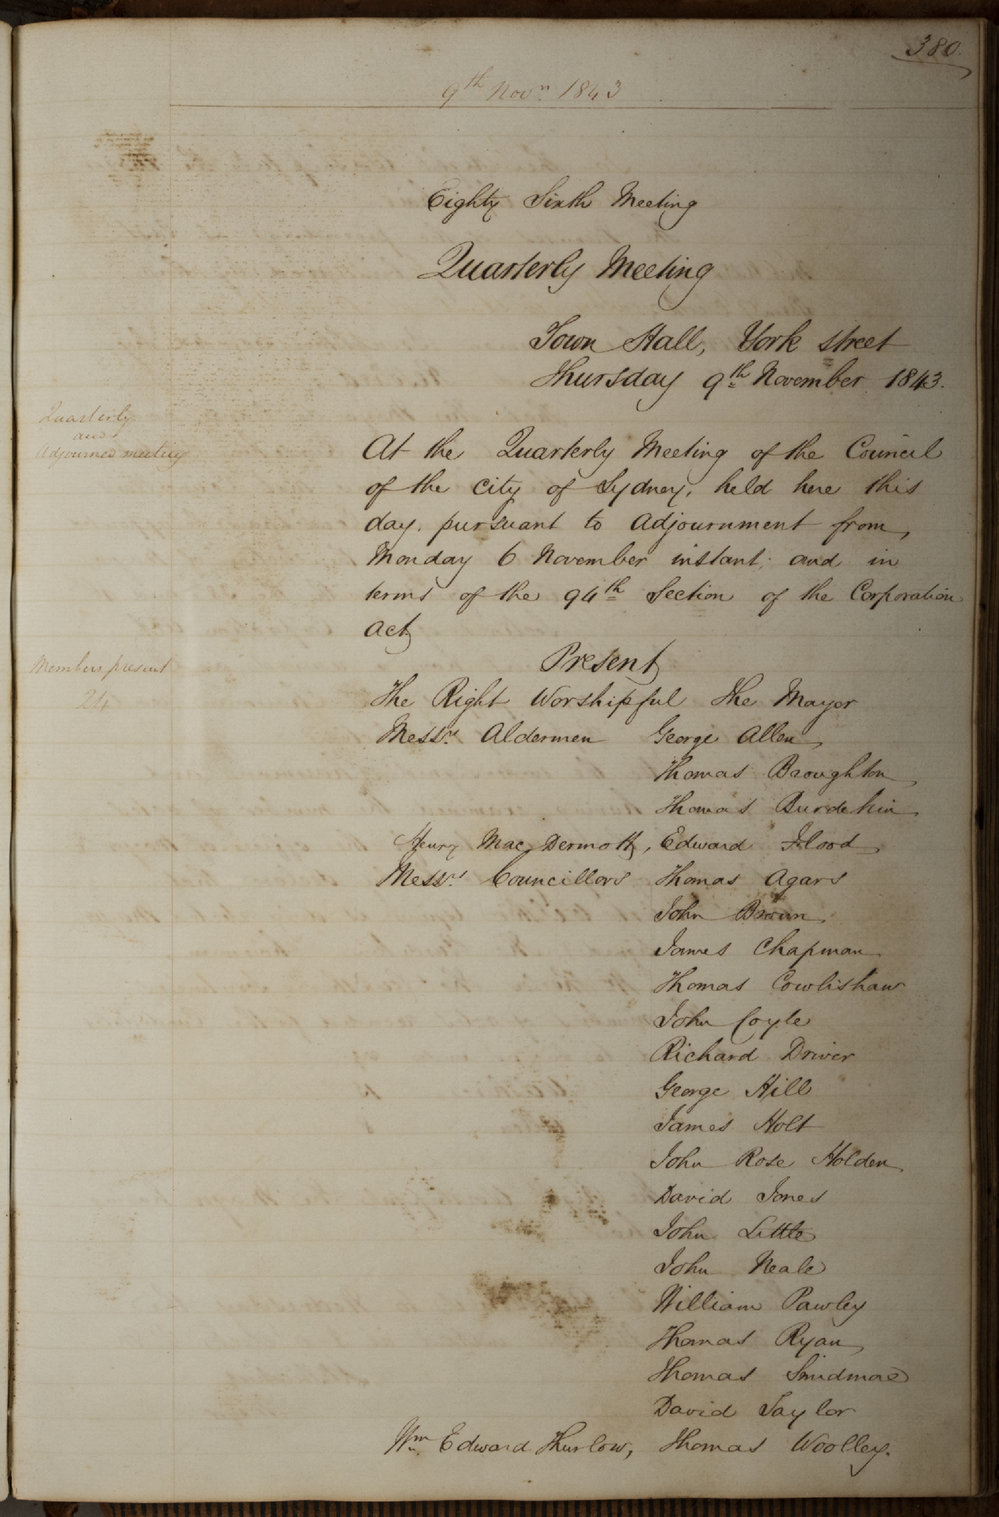 380.
9th Novr. 1843
Eighty Sixth Meeting
Quarterly Meeting
Town Hall, York street
Thursday 9th November 1843.
Quarterly
and
Adjourned meeting
At the Quarterly Meeting of the Council
of the city of Sydney, held here this
day, pursuant to Adjournment from
Monday 6 November instant; and in
terms of the 94th Section of the Corporation
Act
Present
Members present
24
The Right Worshipful The Mayor
Messrs. Aldermen George Allen
Thomas Broughton
Thomas Burdekin
Henry Mac Dermott, Edward Flood
Messrs. Councillors Thomas Agars
John Brown
James Chapman
Thomas Cowlishaw
John Coyle
Richard Driver
George Hill
James Holt
John Rose Holden
David Jones
John Little
John Neale
William Pawley
Thomas Ryan
Thomas Smidmore
David Taylor
Wm. Edward Thurlow, Thomas Woolley.